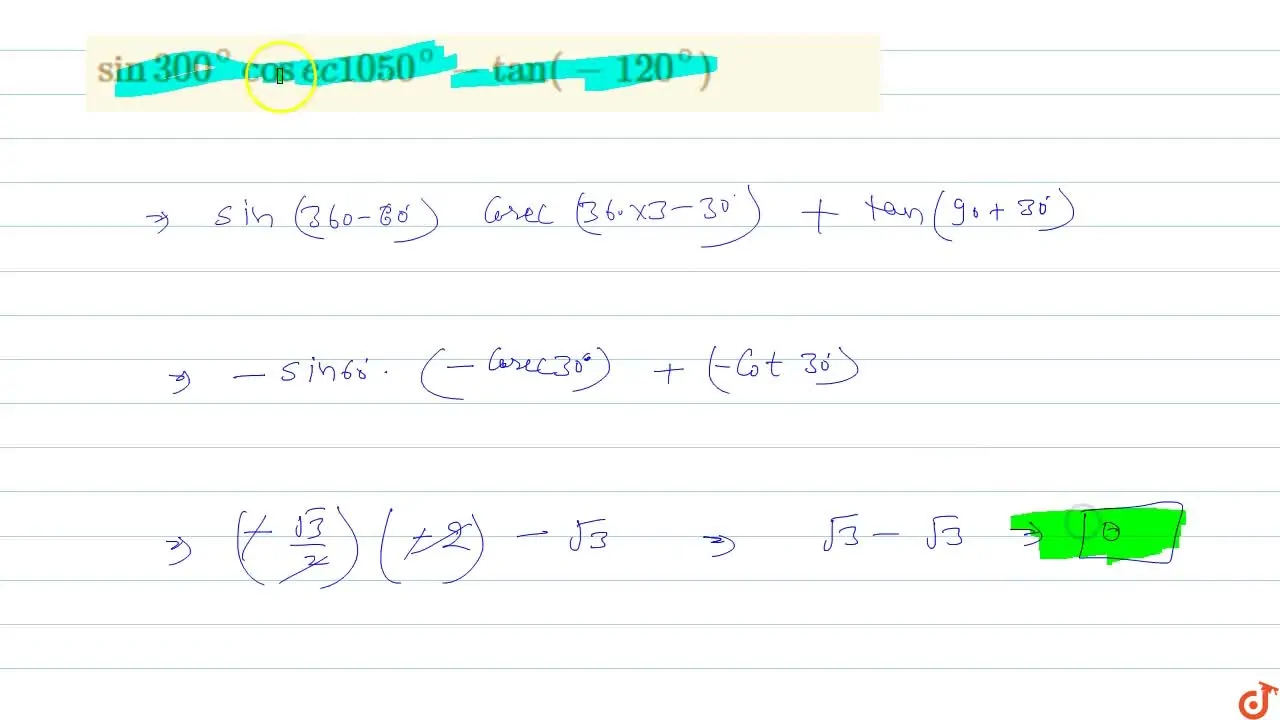 sin 300° cosec1050° − tan(−120°)
⇒ sin (360-60°) Cosec (360×3-30°) + tan (90+30°)
⇒ - sin60°. (- Cosec30°) + (-Cot 30°)
⇒ (-√3/2) (-2) - √3 ⇒ √3 - √3 ⇒ 0